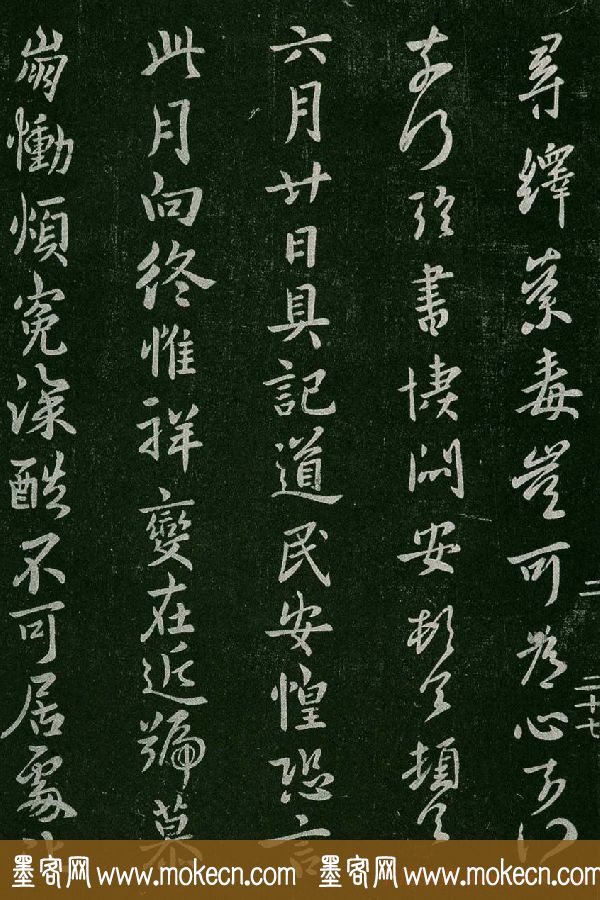 尋繹荼毒豈可為心奈何
奈何臨書悽悶安頓首頓首
六月廿日具記道民安惶恐言
此月向終惟祥變在近號慕
崩慟煩冤深酷不可居處
二 二十七
墨客网 www.mokecn.com 墨客网 www.mokecn.com